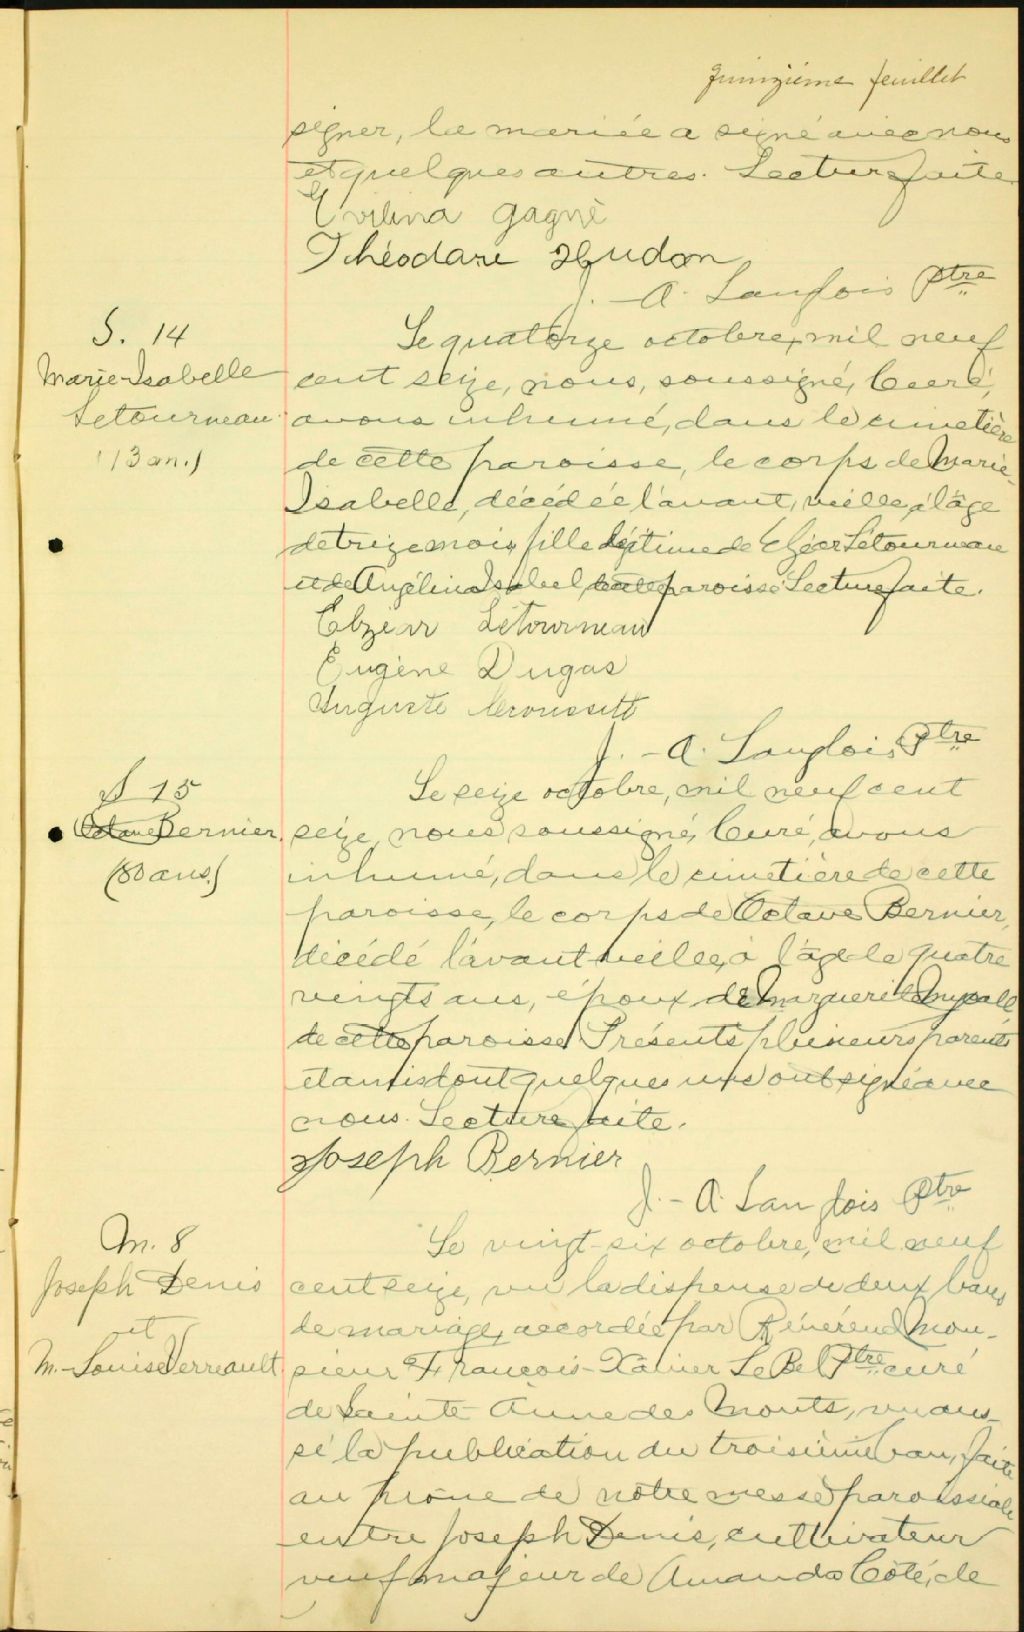 quinzième feuillet
signer, la mariée a signé avec nous
et quelques autres. Lecture faite
Evilina Gagné
Théodore Hudon
J.-A. Langlois Ptre
S. 14
Marie-Isabelle
Letourneau
(13 m.)
Le quatorze octobre, mil neuf
cent seize, nous, soussigné, Curé,
avons inhumé, dans le cimetière
de cette paroisse, le corps de Marie-
Isabelle, décédée l'avant-veille, à l'âge
de treize mois, fille légitime de Elzéar Létourneau
et de Angélina Isabel de cette paroisse. Lecture faite.
Elzéar Létourneau
Eugène Dugas
Auguste
J.-A. Langlois, Ptre
S 15
Octave Bernier.
(80 ans.)
Le seize octobre, mil neuf cent
seize, nous soussigné, Curé, avons
inhumé, dans le cimetière de cette
paroisse, le corps de Octave Bernier,
décédé l'avant-veille, à l'âge de quatre
vingts ans, époux de Marguerite
de cette paroisse. Présents plusieurs parents
et amis dont quelques uns ont signé avec
nous. Lecture faite.
Joseph Bernier
J.-A. Langlois Ptre
M. 8
Joseph Denis
et
M.-Louise Verreault.
Le vingt-six octobre, mil neuf
cent seize, vu la dispense de deux bans
de mariage, accordée par Révérend Mon-
sieur François-Xavier LeBel Ptre curé
de Sainte Anne des Monts, vu aus-
si la publication du troisième ban, faite
au prône de notre messe paroissiale
entre Joseph Denis, cultivateur
veuf majeur de Amanda Côté, de